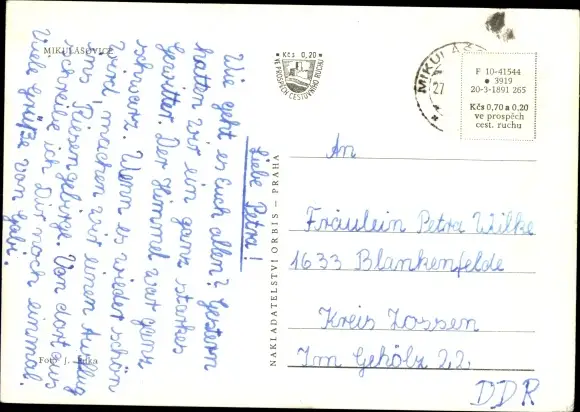 MIKULÁŠOVICE
Liebe Petra!
Wie geht es Euch allen? Gestern
hatten wir ein ganz starkes
Gewitter. Der Himmel war ganz
schwarz. Wenn es wieder schön
wird, machen wir einen Ausflug
ins Riesengebirge. Von dort aus
schreibe ich Dir noch einmal.
Viele Grüße von Gabi.
Foto J.
NAKLADATELSTVÍ ORBIS – PRAHA
Kčs 0,20
VE PROSPĚCH CESTOVNÍHO RUCHU
MIKULÁŠ
27
F 10-41544
• 3919
20-3-1891 265
Kčs 0,70 a 0,20
ve prospěch
cest. ruchu
An
Fräulein Petra Wilke
1633 Blankenfelde
Kreis Zossen
Im Gehölz 22.
DDR